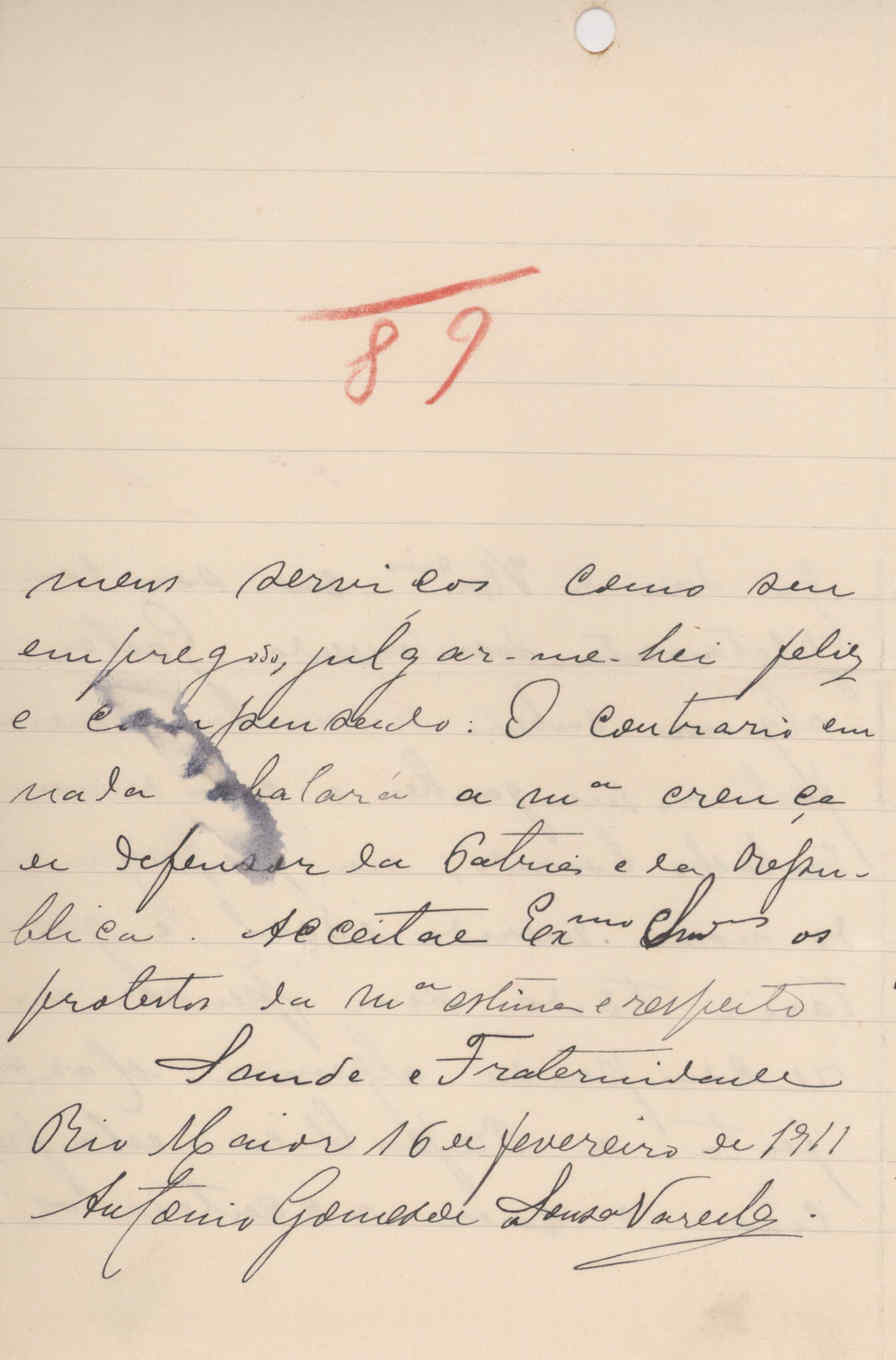 89
meus serviços como seu
empregado, julgar-me-hei feliz
e compensado. O contrario em
nada abalará a mª crença
de defensor da Patria e da Repu-
blica. Acceitae Exmos Snrs os
protestos da mª estima e respeito
Saude e Fraternidade
Rio Maior 16 de fevereiro de 1911
Antonio Gomes de Sousa Varella.